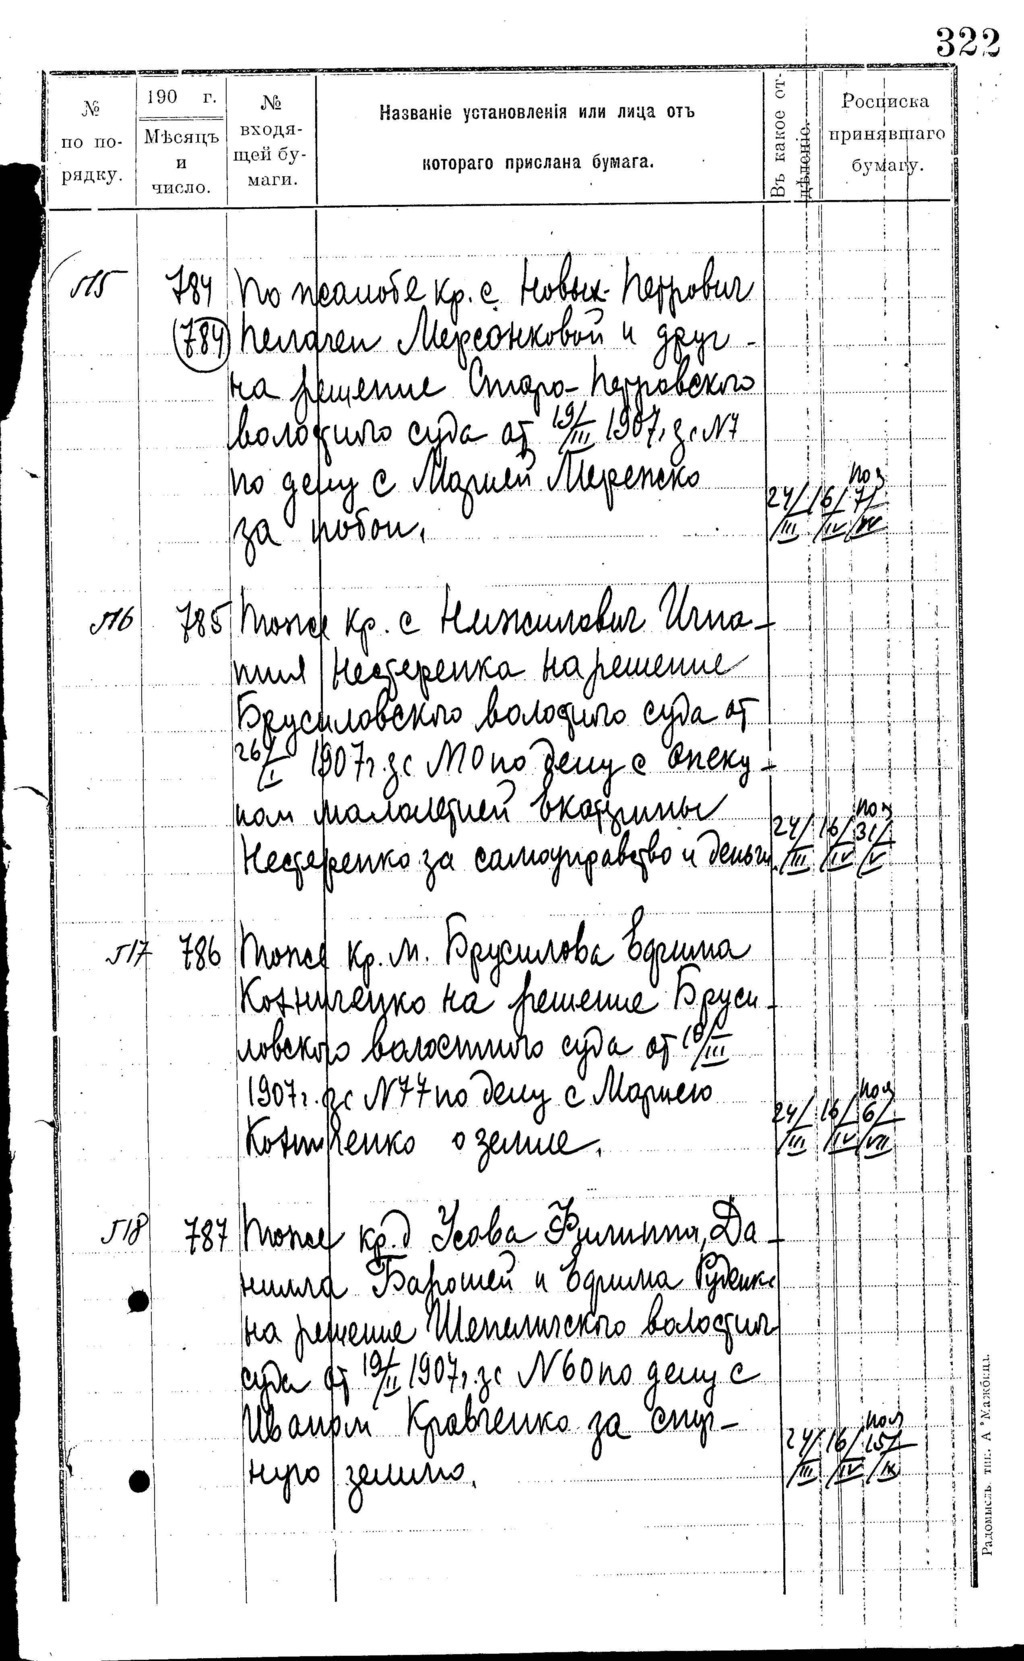 322
№ по по-рядку.
190 г.
Мѣсяцъ и число.
№ входя-щей бу-маги.
Названіе установленія или лица отъ
котораго прислана бумага.
Въ какое от-дѣленіе.
Росписка принявшаго бумагу.
515 784 По жалобе кр. с. Новых-Петрович
(784) Пелагеи Мерсонковой и друг
на решение Старо-Петровского
волостного суда от 19/III 1907 г. за N7
по делу с Марией Мережко
за побои. 24/III 16/IV
516 785 Тоже кр. с Нежилович Игна-
тия Нестеренка на решение
Брусиловского волостного суда от
26/I 1907 г. за N10 по делу с опеку-
ном малолетней Екатерины
Нестеренко за самоуправство и деньги. 24/III 16/IV 31/V
517 786 Тоже кр. м. Брусилова Ефима
на решение Бруси-
ловского волостного суда от /III
1907 г. за N77 по делу с Мариею
о земле. 24/III 16/IV 6/VII
518 787 Тоже кр. д Усова Филиппа, Да-
нилла и Ефима
на решение Шепеличского волостного
суда от 19/II 1907 г. за N60 по делу с
Иваном Кравченко за спор-
ную землю. 24/III 16/IV 15/IX
Радомысль. тип. А Мажбица.